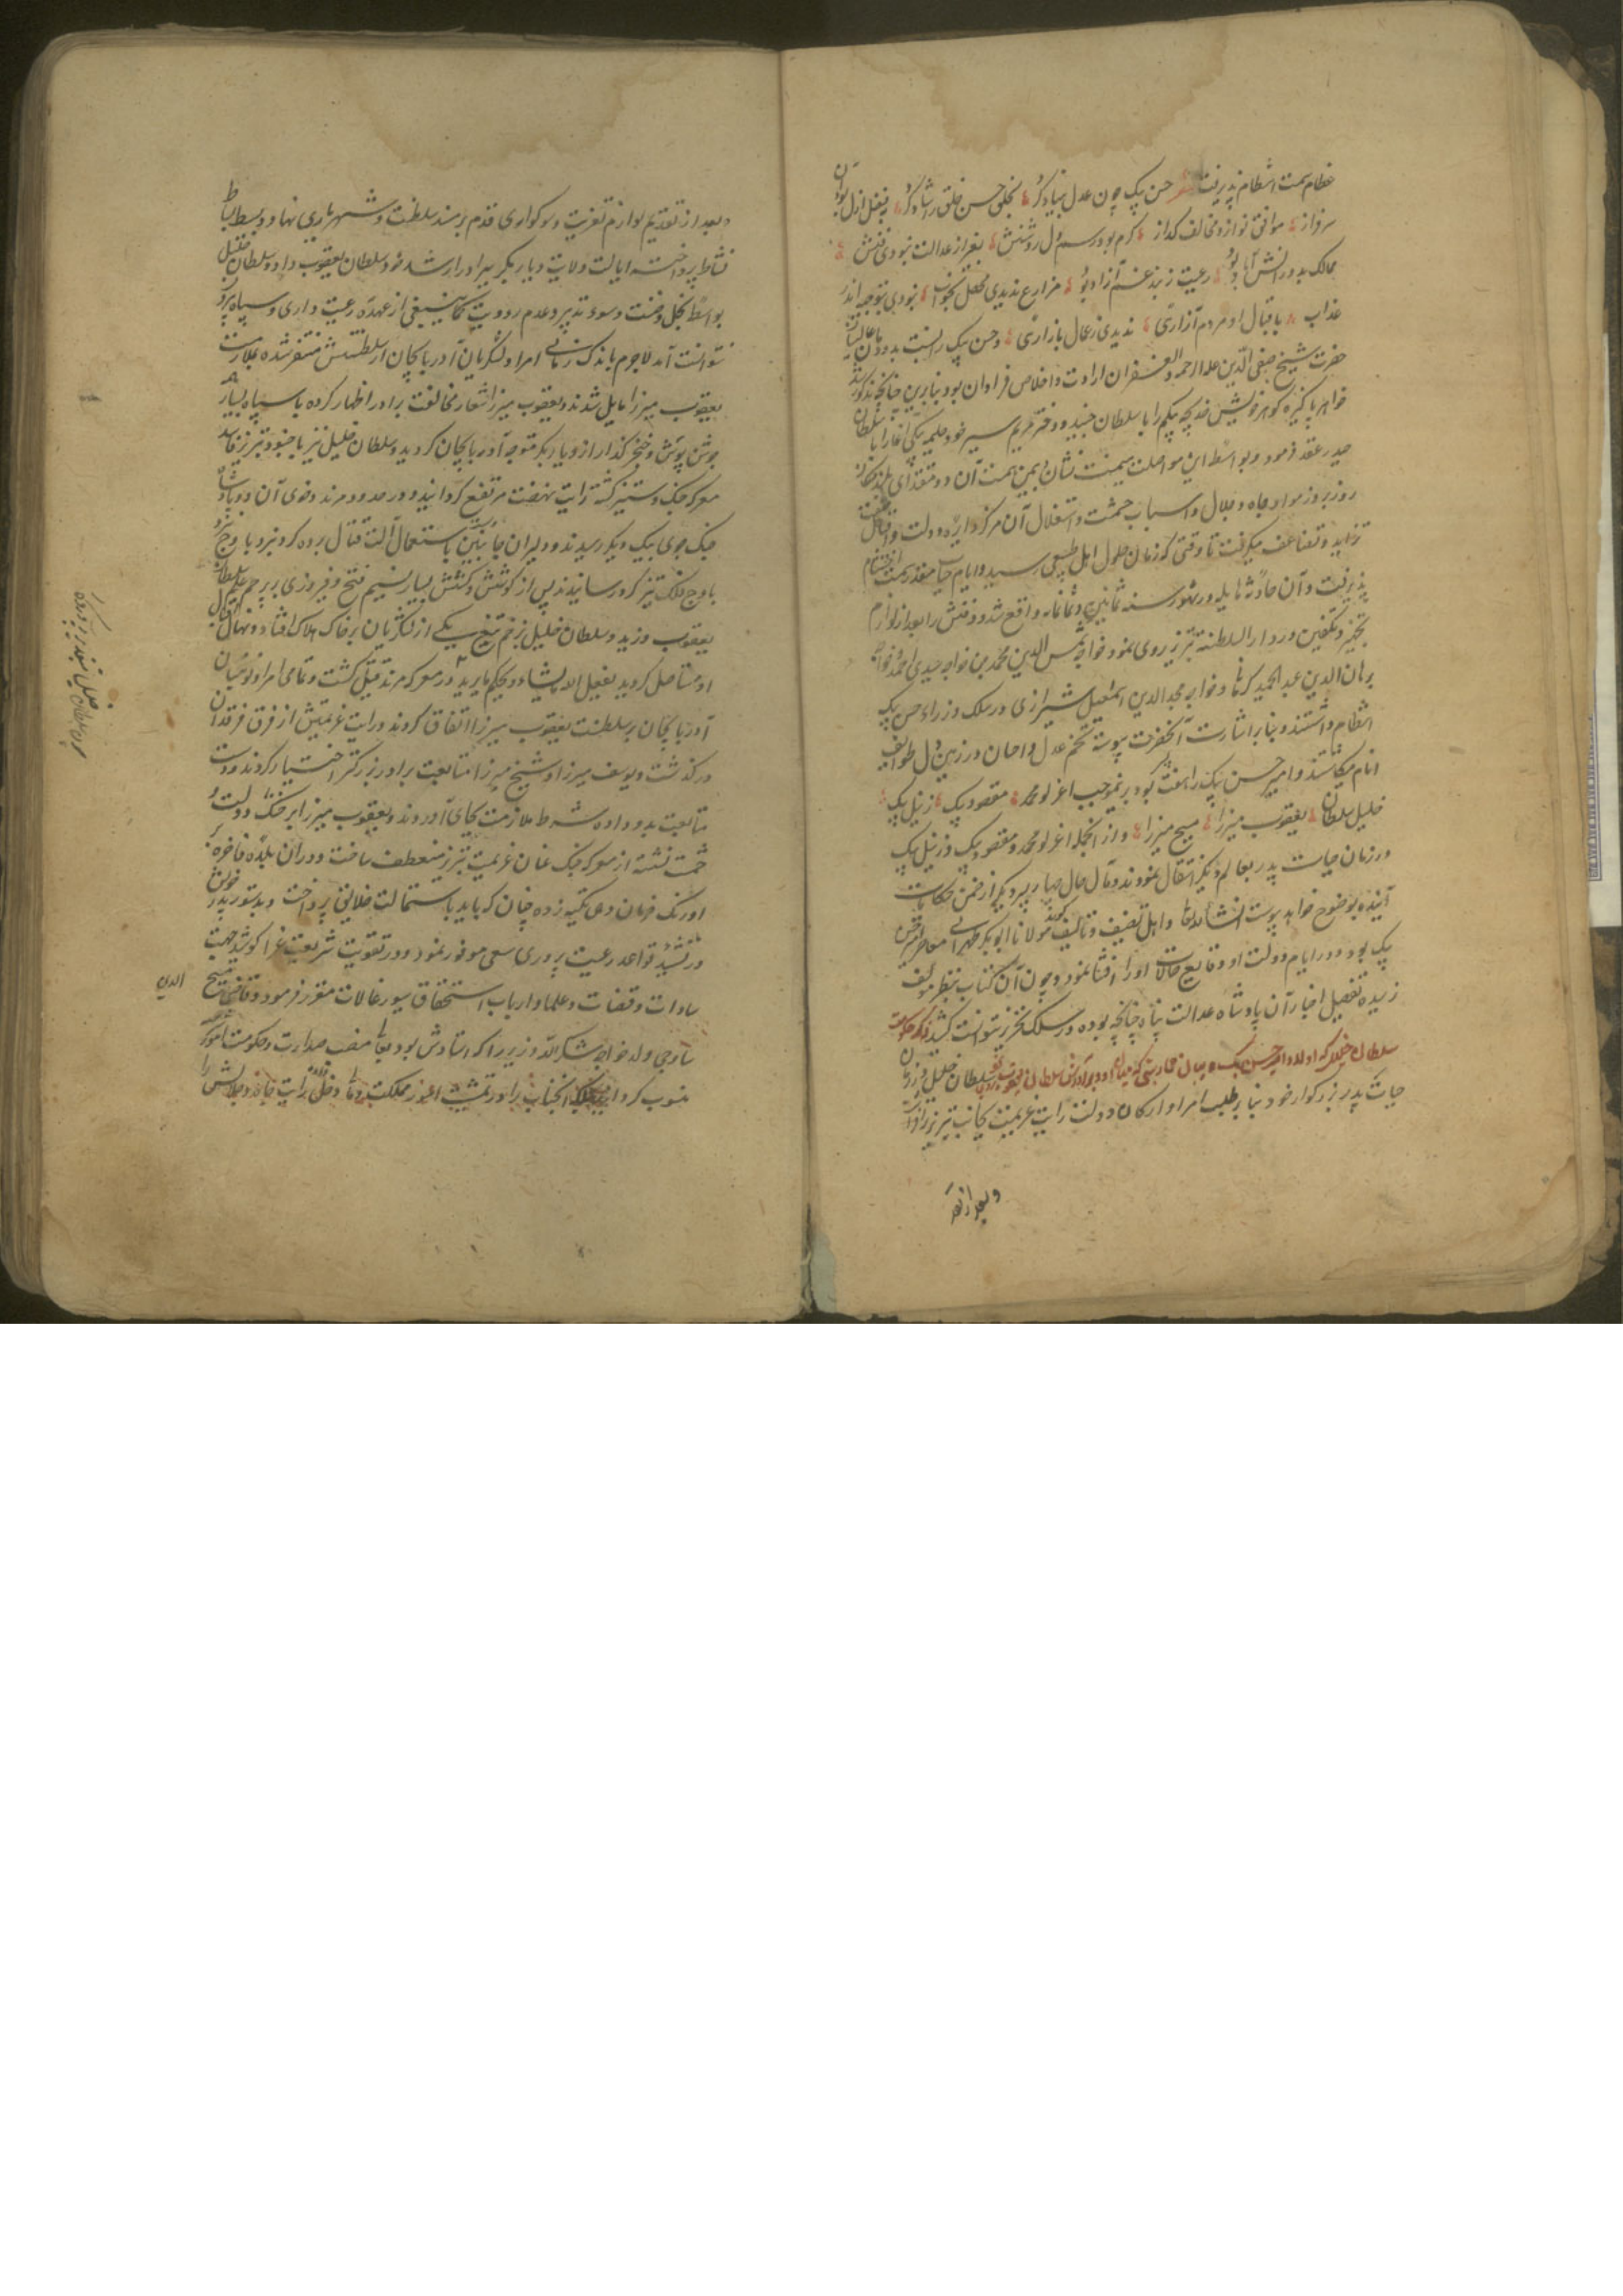 عظام سمت انتظام پذیرفت شعر حسن بیک چون عدل بنیاد کرد بخلق حسن خلق را شاد کرد بفضل ازل بود آن
سرفراز موافق نواز و مخالف گداز کرم بود رسم دل روشنش بغیر از عدالت نبودی فنش
ممالک بدورانش آباد بود رعیت ز بند غم آزاد بود مزارع ندیدی محفل بخواب نبودی بتوجیه اندر
عذاب باقبال او مردم آزاری ندیدی ز عمال بازاری و حسن بیک را نسبت بدودمان عالیشان
حضرت شیخ صفی الدین علیه الرحمه والغفران ارادت و اخلاص فراوان بود بنابرین چنانچه مذکور شد
خواهر پاکیزه گوهر خویش خدیجه بیکم را با سلطان جنید و دختر مریم سیر خود حلیمه بیکی آغا را با سلطان
حیدر عقد فرمود و بواسطه این مواصلت میمنت نشان و بیمن همت آن دو مقتدای بلند مکان
روز بروز مواد جاه و جلال و اسباب حشمت و استقلال آن مرکز دایره دولت و اقبال صفت
تزاید و تضاعف میگرفت تا وقتی که زمان حلول اجل طبیعی رسید و ایام حیات مقدر سمت اختتام
پذیرفت و آن حادثه هایله در شهور سنه ثمانین و ثمانمایه واقع شد و دفنش را بعد از لوازم
تجهیز و تکفین در دار السلطنه تبریز روی نمود خواجه شمس الدین محمد بن خواجه سیدی احمد و خواجه
برهان الدین عبد الحمید کرمانی و خواجه مجد الدین اسمعیل شیرازی در سلک وزراء حسن بیک
انتظام داشتند و بنابر اشارت آنحضرت پیوسته تخم عدل و احسان در زمین دل طوایف
انام میکاشتند و امیر حسن بیک را هفت پسر بود برینموجب اغرلو محمد مقصود بیک زینل بیک
خلیل سلطان یعقوب میرزا مسیح میرزا و از آنجمله اغرلو محمد و مقصود بیک و زینل بیک
در زمان حیات پدر بعالم دیگر انتقال نمودند و مآل حال چهار پسر دیگر از ضمن حکایات
آینده بوضوح خواهد پیوست انشا الله تعالی و اهل تصنیف و تالیف گویند مولانا ابوبکر طهرانی معاصر حسن
بیک بود و در ایام دولت او وقایع حالات او را انشا نمود و چون آن کتاب بنظر مولف
نرسیده تفصیل اخبار آن پادشاه عدالت پناه چنانچه بوده در سلک تحریر نتوانست کشید ذکر حکومت
سلطان خلیل که اولاد امیر حسن بیک و بیان محاربتی که میان او و برادرش سلطان یعقوب بوقوع سلطان خلیل در زمان
حیات پدر بزرگوار خود بنابر طلب امرا و ارکان دولت رایت عزیمت بجانب تبریز برافراشت
و بعد از تقدیم
و بعد از تقدیم لوازم تعزیت و سوکواری قدم بر مسند سلطنت و شهریاری نهاد و ببسط بساط
نشاط پرداخته ایالت ولایت دیار بکر ببرادر ارشد خود سلطان یعقوب داد و سلطان خلیل
بواسطه بخل و خست و سوء تدبیر و عدم رویت کما ینبغی از عهده رعیت داری و سپاه پروری
نتوانست آمد لاجرم باندک زمانی امرا و لشکریان آذربایجان از سلطنتش متنفر شده بملازمت
یعقوب میرزا مایل شدند و یعقوب میرزا شعار مخالفت برادر اظهار کرده با سپاه بسیار
جوشن پوش و خنجر گذار از دیار بکر متوجه آذربایجان گردید و سلطان خلیل نیز با جنود تبریز قاصد
معرکه جنگ و ستیز گشته رایت نهضت مرتفع گردانید و در حدود مرند و خوی آن دو پادشاه
جنگجوی بیک دیگر رسیدند و دلیران جانبین باستعمال آلت قتال برده گرد نبرد با وج
باوج فلک تیز گرد رسانیدند پس از کوشش و کشش بسیار نسیم فتح و فیروزی بر پرچم علم سلطان
یعقوب وزید و سلطان خلیل بزخم تیغ یکی از لشکریان بر خاک هلاک افتاد و نهال اقبال
او مستاصل گردید یفعل الله ما یشاء و یحکم ما یرید در معرکه مرند قتیل گشت و تمامی امرا و لوئیان
آذربایجان بر سلطنت یعقوب میرزا اتفاق کردند و رایت عزیمتش از فرق فرقدان
درگذشت و یوسف میرزا و مسیح میرزا متابعت برادر بزرگتر اختیار کردند و دست
متابعت بدو داده شرط ملازمت بجای آوردند و یعقوب میرزا بر خنک دولت و
حشمت نشسته از معرکه جنگ عنان عزیمت بتبریز منعطف ساخت و در آن بلده فاخره بر
اورنک فرمان دهی تکیه زده چنان که باید باستمالت خلایق پرداخت و بدستور پدر خویش
در تشیید قواعد رعیت پروری سعی موفور نمود و در تقویت شریعت غرا کوشید جهت
سادات و قضات و علما و ارباب استحقاق سیورغالات مقرر فرمود و قاضی مسیح الدین
ساوجی ولد خواجه شکر الله وزیر را که استادش بود بعالی منصب صدارت و حکومت امور
منسوب گردانید بلکه آنجناب را در تمشیت امور مملکت و مالی دخل داد رایت جاه و جلالش را